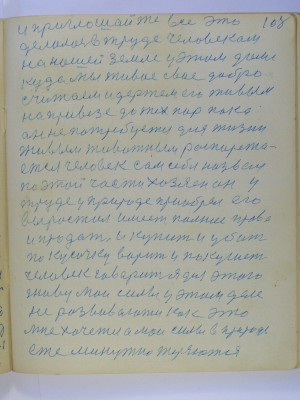 и приглошайте все это 108
делалось в труде человекам
на нашей земле у этом деле
куда мы живое свае добро
считаем и держем его живьем
на привезе до тех пор пока
ан не потребуется для жизни
живым животным роспоряжа-
ется человек сам себя назвал
по этой части хозяен ан у
труде у природе приобрел его
выростил имеет полное право
и продать и купит и убит
по кусочку варит и покушает
человек
для этого
живу мои силы у этом деле
не розвивалоти как это
мне хочется а мои силы в природе
еже минутно теряются